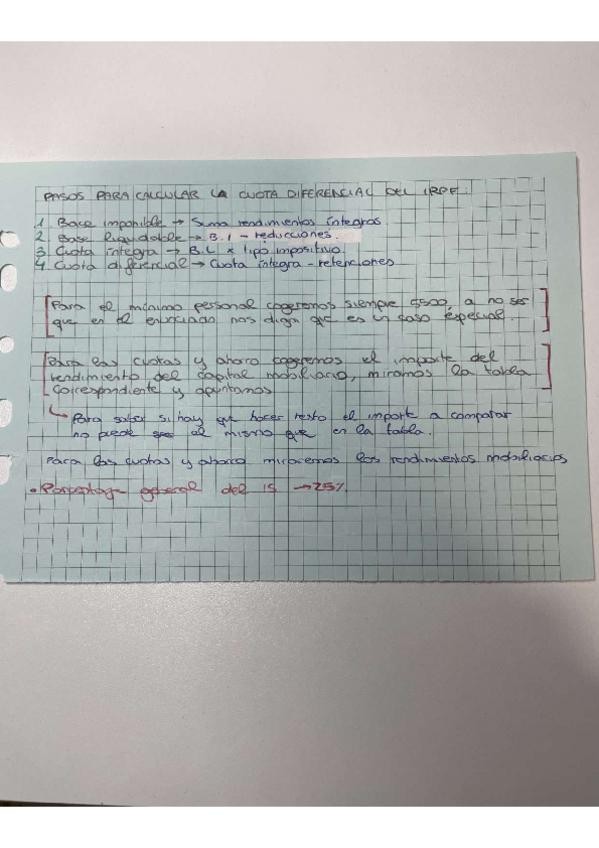 PASOS PARA CALCULAR LA CUOTA DIFERENCIAL DEL IRPF:
1 Base imponible → Suma rendimientos íntegros
2 Base liquidable → B.I - reducciones.
3 Cuota íntegra → B.L x tipo impositivo
4 Cuota diferencial → Cuota íntegra - retenciones
[Para el mínimo personal cogeremos siempre 5500, a no ser
que en el enunciado nos digan que es un caso especial.]
[Para las cuotas y ahorro cogeremos el importe del
rendimiento del capital mobiliario, miramos la tabla
correspondiente y apuntamos]
↳ Para saber si hay que hacer resto el importe a comparar
no puede ser el mismo que en la tabla.
Para las cuotas y ahorro miraremos los rendimientos mobiliarios
• Porcentaje general del IS → 25%.